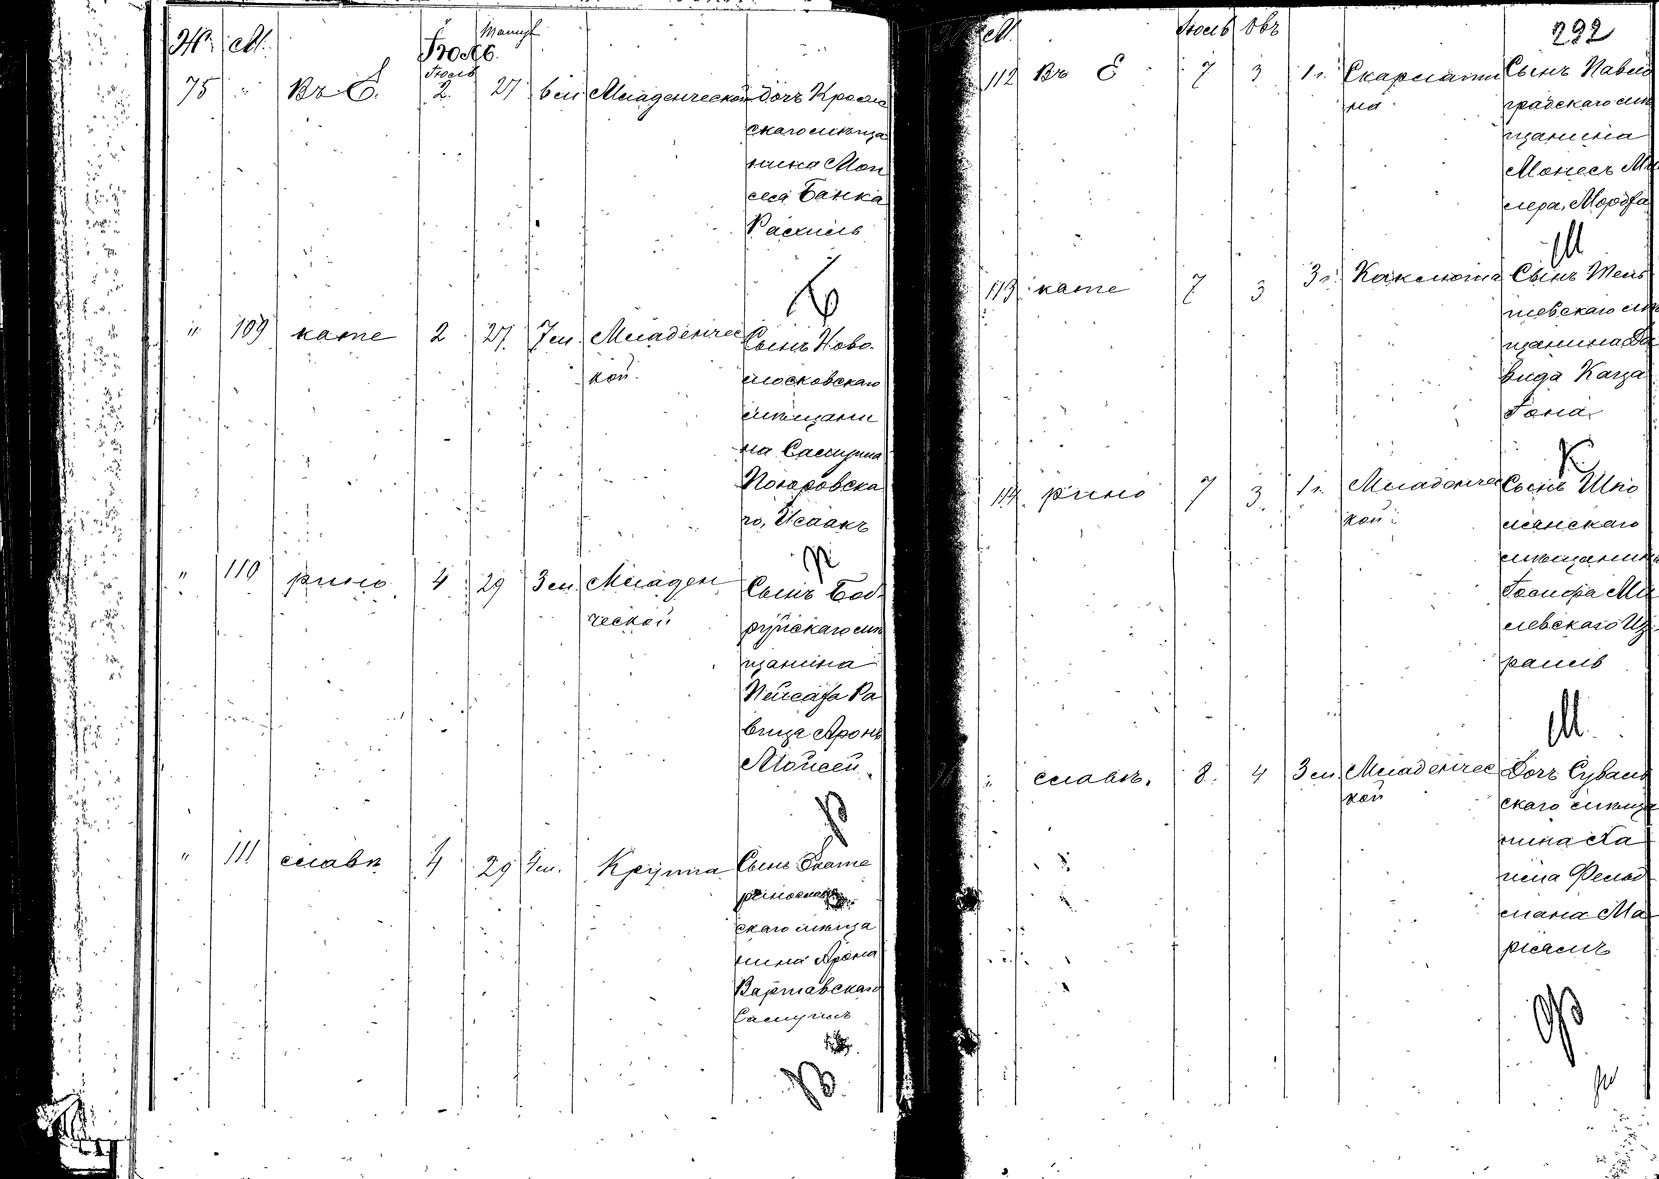 Ж. М. Іюль. Тамуз
Іюль
75 " Въ Е. 2 27 6 м Младенческой Дочь Крым
скаго мѣща
нина Мов
сея Банка
Рахиль
Б
" 109 кате 2 27 7 м. Младенчес Сынъ Ново
кой московскаго
мѣщани
на Самуила
го, Исаакъ
П
" 110 рино 4 29 3 м. Младен Сынъ Боб
ческой руйскаго мѣ
щанина
Пейсаха Ра
вица Аронъ
Мойсей
Р
" 111 славѣ 4 29 4 м. Крупъ Сынъ Екате
ринослав
скаго мѣща
нина Арона
Варшавскаго
Самуилъ
В
292
М. Іюль Овъ
112 Въ Е 7 3 1 г. Скарлати Сынъ Павло
на градскаго мѣ
щанина
Монесъ Ми
лера, Мордха
М
113 кате 7 3 3 г. Сынъ
скаго мѣ
щанина Да
вида Каца
Іона
К
114 рино 7 3 1 г. Младенчес Сынъ Шпо
кой лянскаго
мѣщанина
Іосифа Ми
левскаго Из
раиль
М
" славѣ. 8. 4 3 м. Младенчес Дочь Суваль
кой скаго мѣща
нина Ха
има Фельд
мана Ма
ріямъ
Ф